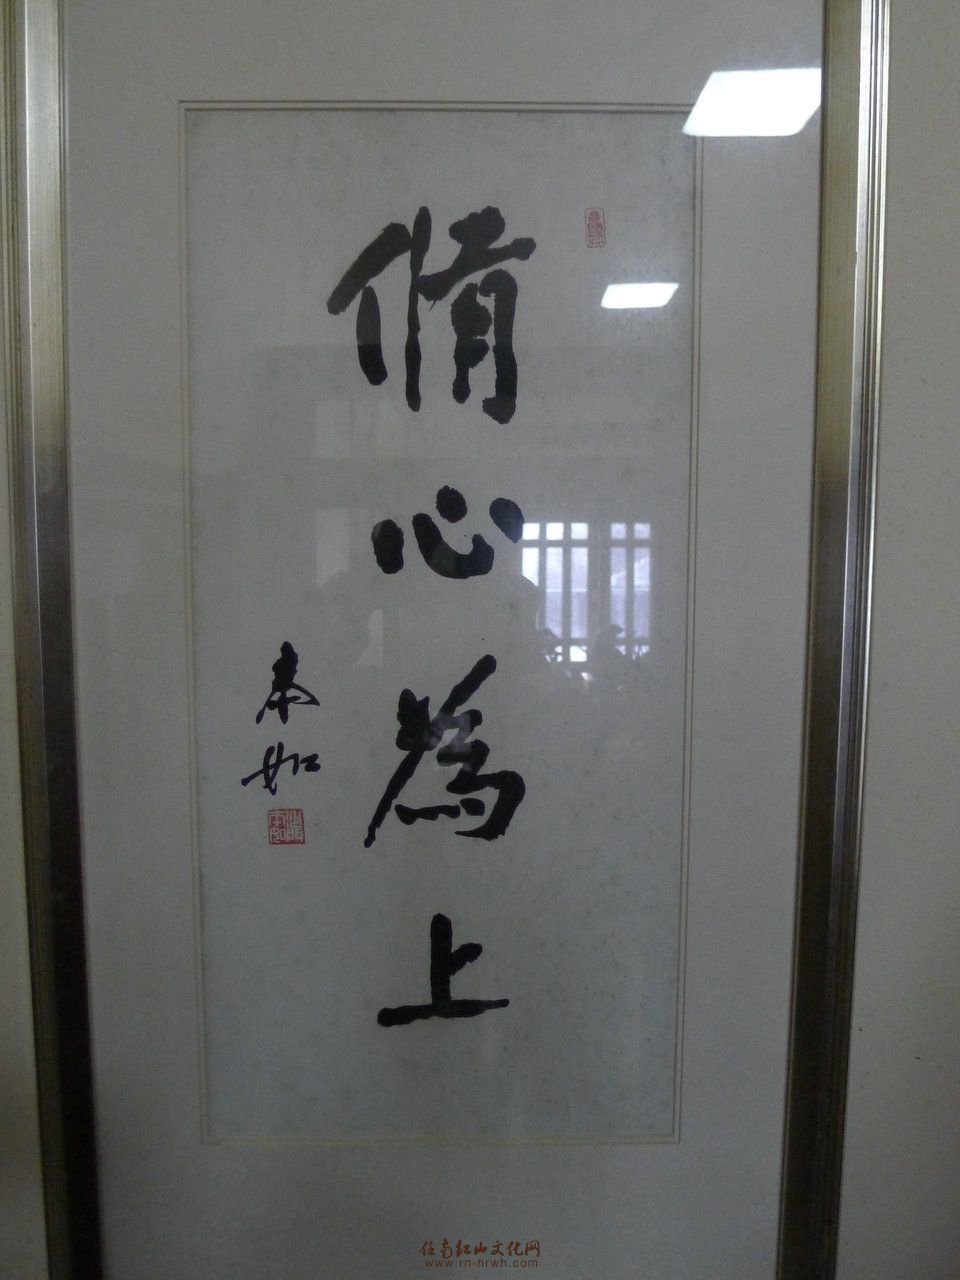 脩心為上
本如
任南红山文化网
www.rn-hrwh.com